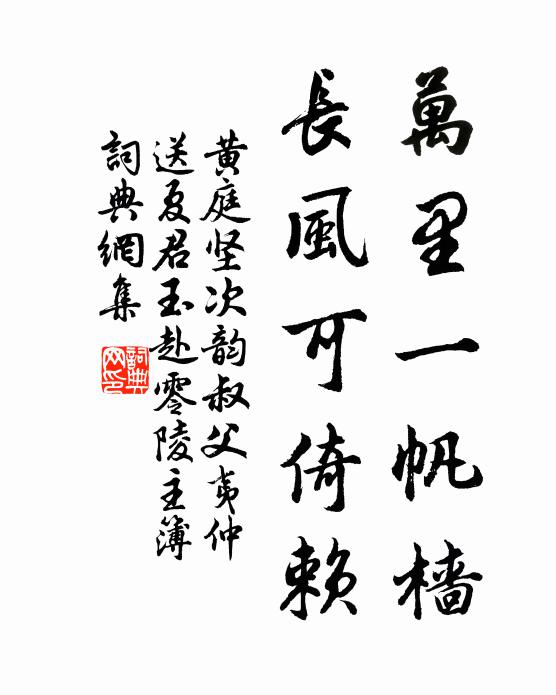 萬里一帆檣
長風可倚賴
黃庭坚次韵叔父夷仲
送夏君玉赴零陵主簿
詞典網集
詞典網印